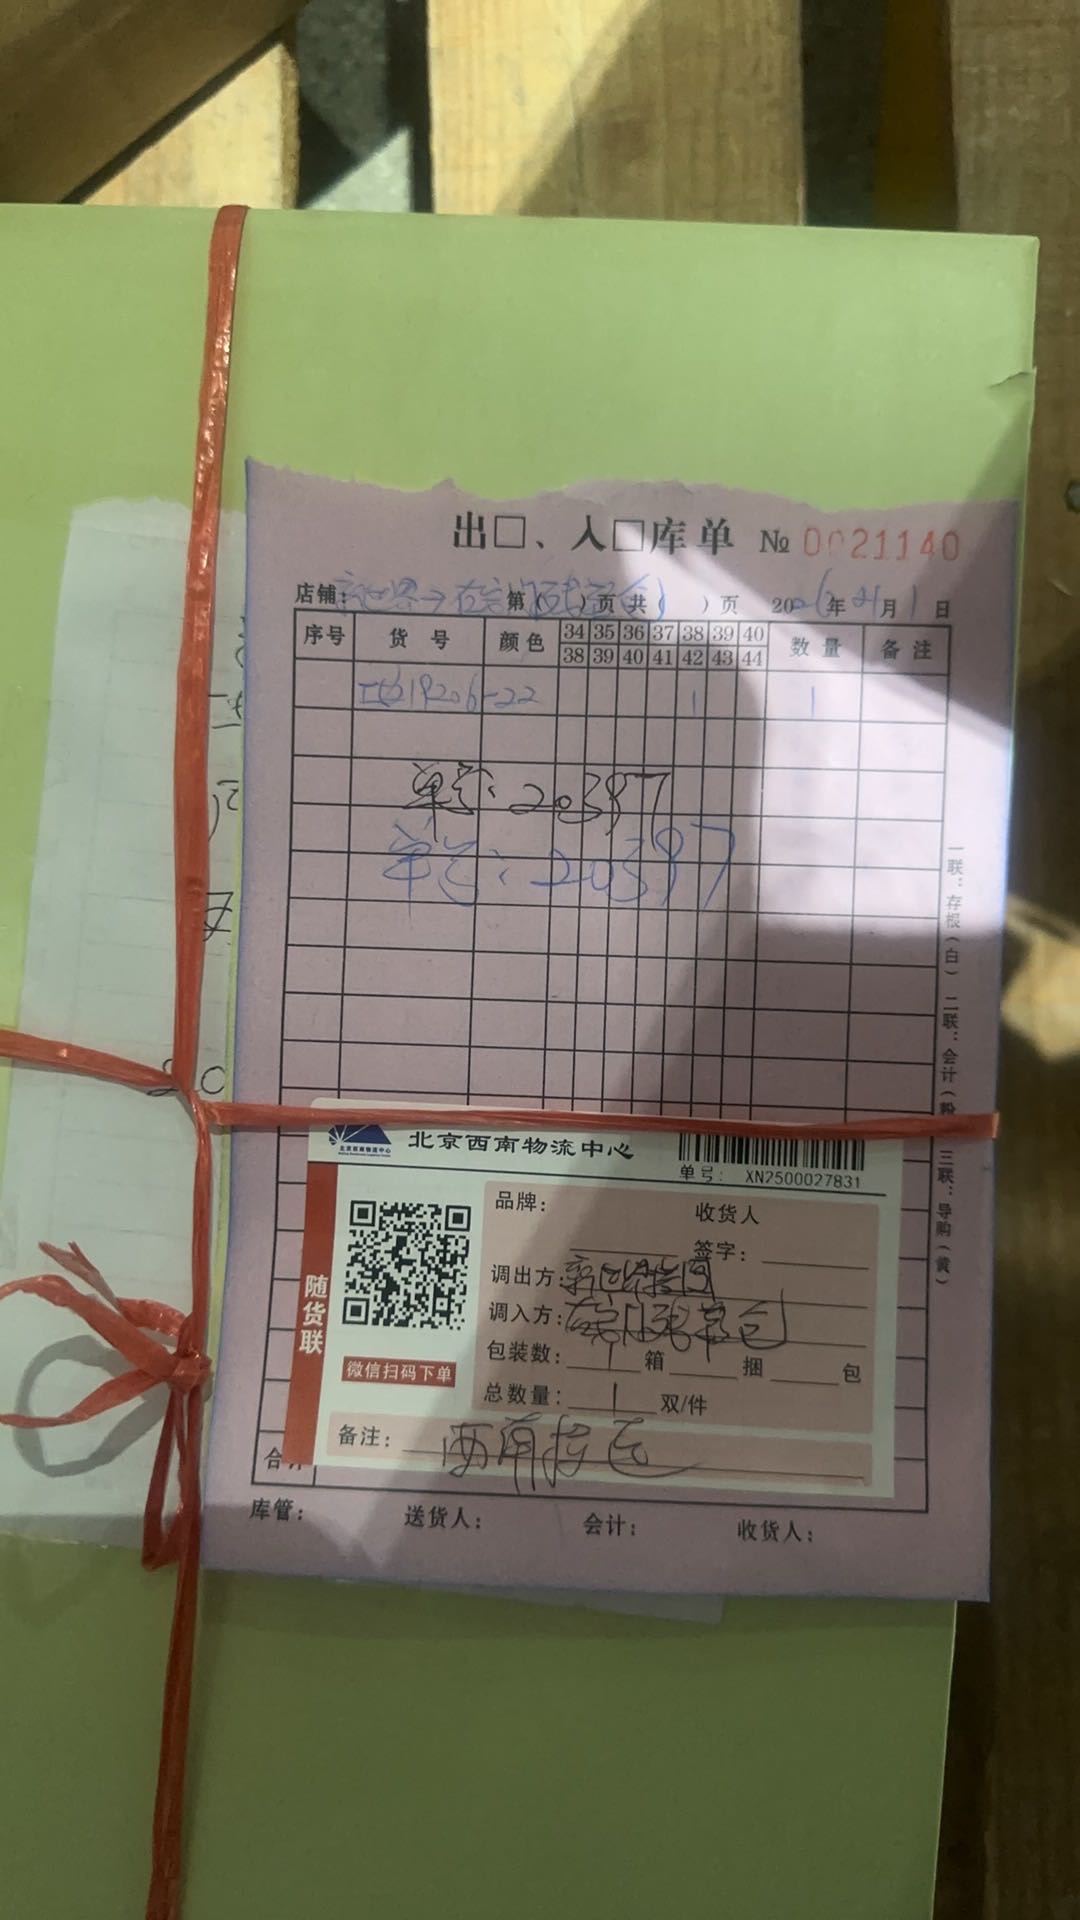 出□、入□库单 № 0021140
店铺: 新世界→ 第( )页 共( )页 20 年 月 1 日
序号 货号 颜色 34 35 36 37 38 39 40 数量 备注
38 39 40 41 42 43 44
1 1
单号:20397
单号:20397
一联:存根(白) 二联:会计(粉 三联:导购(黄)
北京西南物流中心
单号: XN2500027831
随货联
微信扫码下单
品牌: 收货人
签字:
调出方:新世界
调入方:
包装数: 1 箱 捆 包
总数量: 1 双/件
备注: 西南
合计
库管: 送货人: 会计: 收货人: